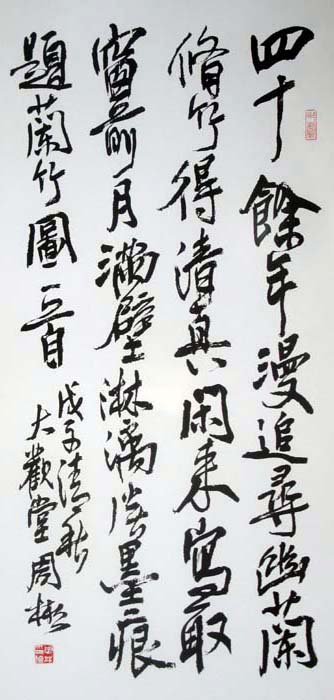 四十餘年漫追尋幽蘭
脩竹得清真閑来寫取
窗前月滿壁淋漓淡墨痕
題蘭竹圖一首
戊子清秋
大觀堂周